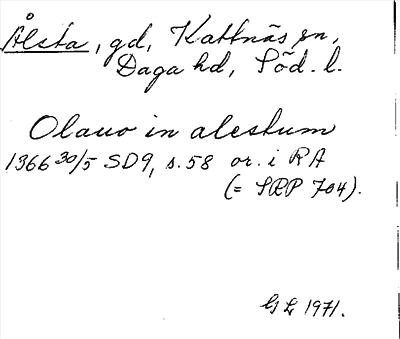 Ålsta, gd, Kattnäs sn,
Daga hd, Söd. l.
Olauo in alestum
1366 30/5 SD9, s. 58 or. i RA
(= SRP 704).
GL 1971.